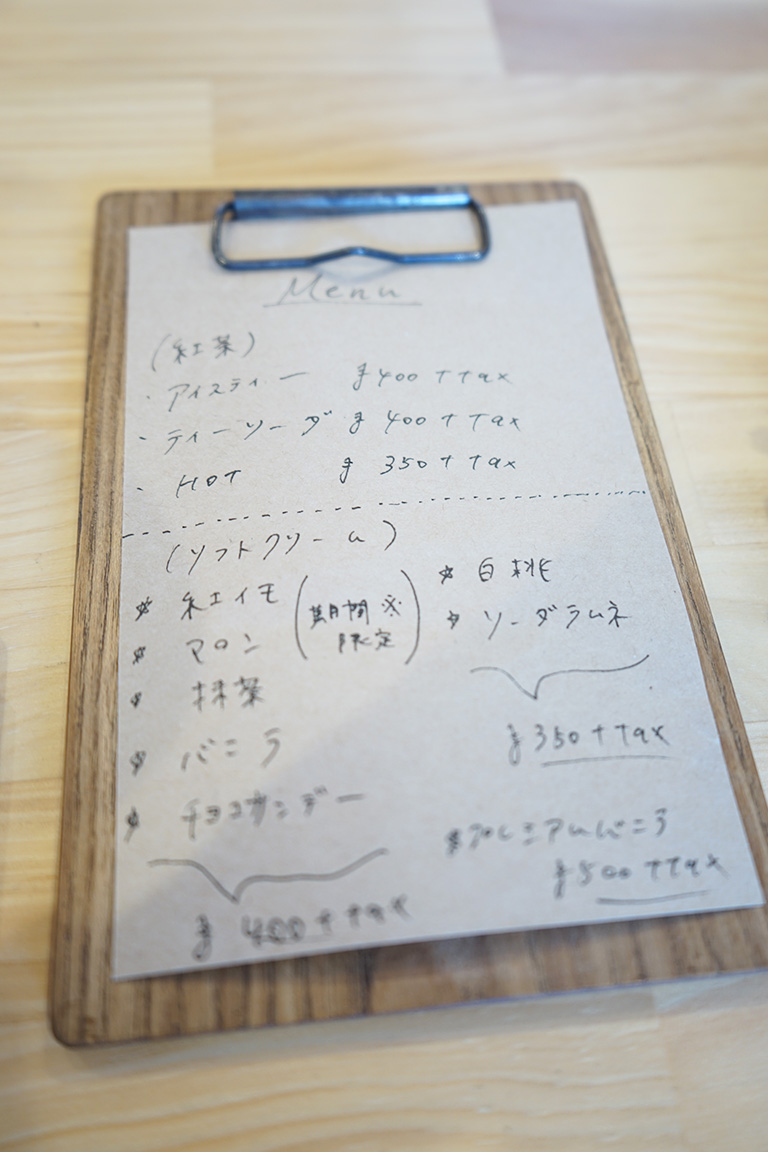 Menu
(紅茶)
・アイスティー ¥400+tax
・ティーソーダ ¥400+Tax
・HOT ¥350+tax
(ソフトクリーム)
☆紅イモ
☆マロン
(期間※
限定)
☆抹茶
☆バニラ
☆チョコサンデー
¥400+tax
☆白桃
☆ソーダラムネ
¥350+Tax
☆プレミアムバニラ
¥500+Tax